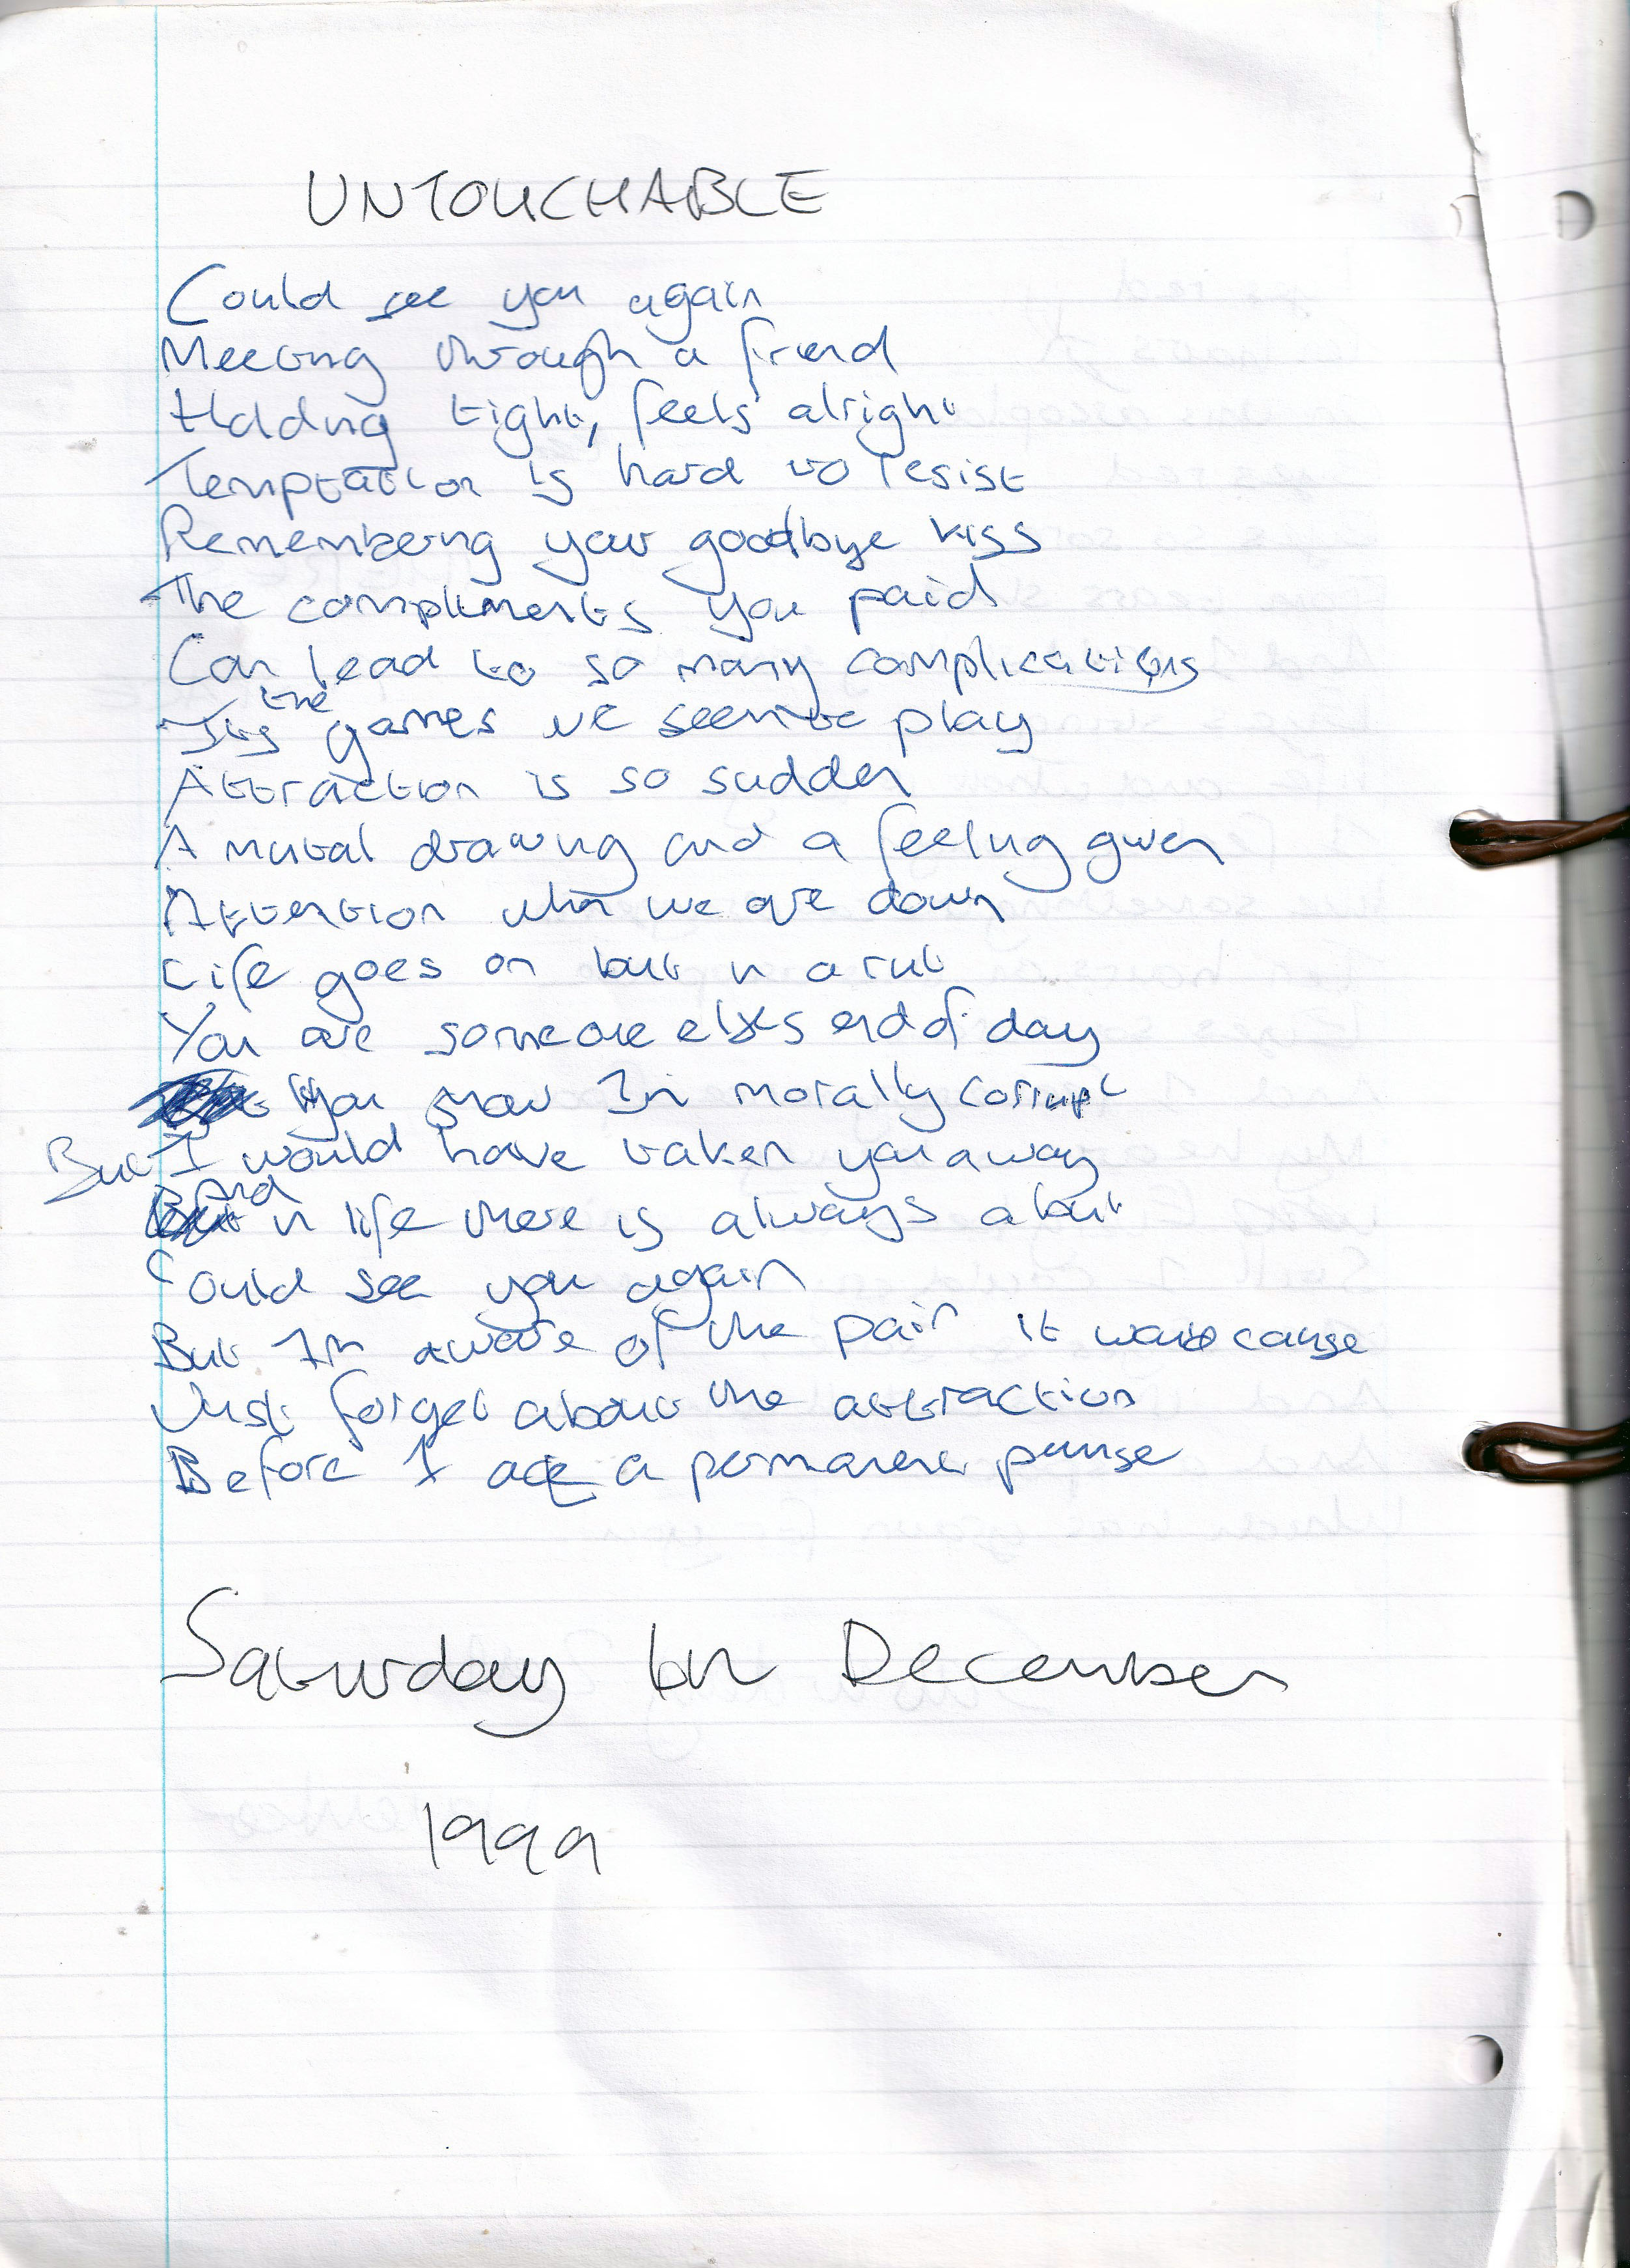 UNTOUCHABLE
Could see you again
Meeting through a friend
Holding tight, feels alright
Temptation is hard to resist
Remembering your goodbye kiss
The compliments you paid
Can lead to so many complications
Its the games we seem to play
Attraction is so sudden
A mutal drawing and a feeling given
Attention when we are down
Life goes on but in a rut
You are someone elses end of day
You know Im morally corrupt
But I would have taken you away
And in life there is always a but
Could see you again
But Im aware of the pain it would cause
Just forget about the attraction
Before I act a permanent pause
Saturday December
1999